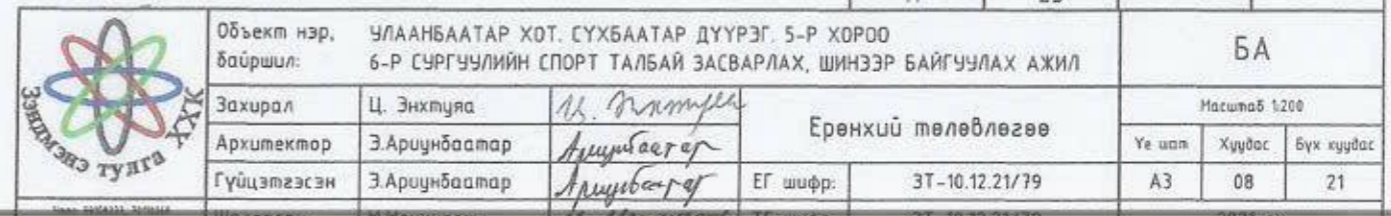 Зэндмэнэ тулга ХХК
Объект нэр, байршил:
УЛААНБААТАР ХОТ. СҮХБААТАР ДҮҮРЭГ. 5-Р ХОРОО
6-Р СУРГУУЛИЙН СПОРТ ТАЛБАЙ ЗАСВАРЛАХ, ШИНЭЭР БАЙГУУЛАХ АЖИЛ
БА
Захирал Ц. Энхтуяа Ц. Энхтуяа
Ерөнхий төлөвлөгөө
Масштаб 1:200
Архитектор Э.Ариунбаатар Ариунбаатар
Үе шат Хуудас Бүх хуудас
Гүйцэтгэсэн Э.Ариунбаатар Ариунбаатар ЕГ шифр: ЗТ-10.12.21/79 А3 08 21